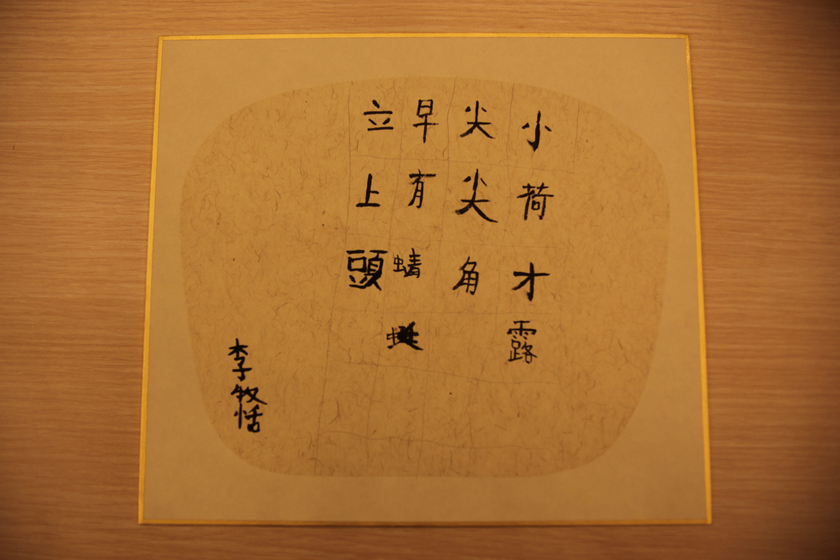 小荷才露
尖尖角
早有蜻
立上頭
李牧恬